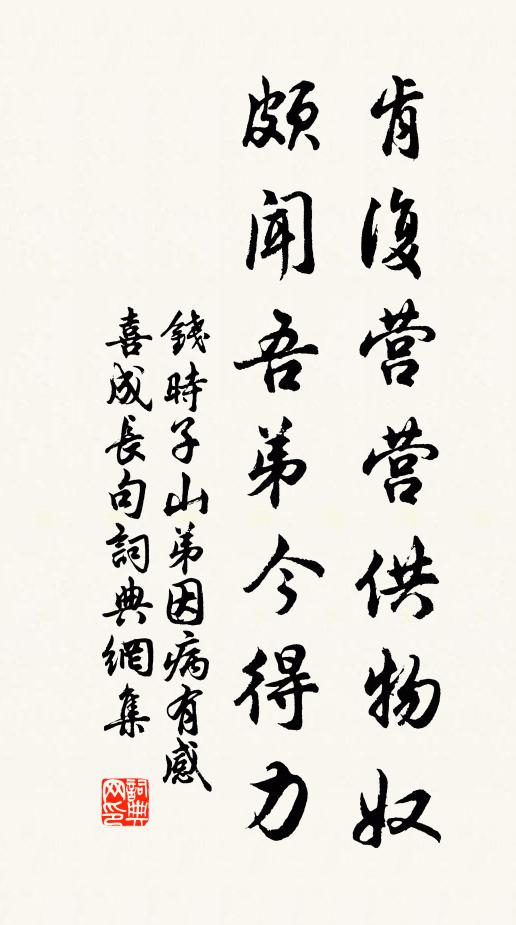 肯復营营供物奴
頗聞吾弟今得力
錢時子山弟因病有感
喜成長句詞典網集
詞典
网印